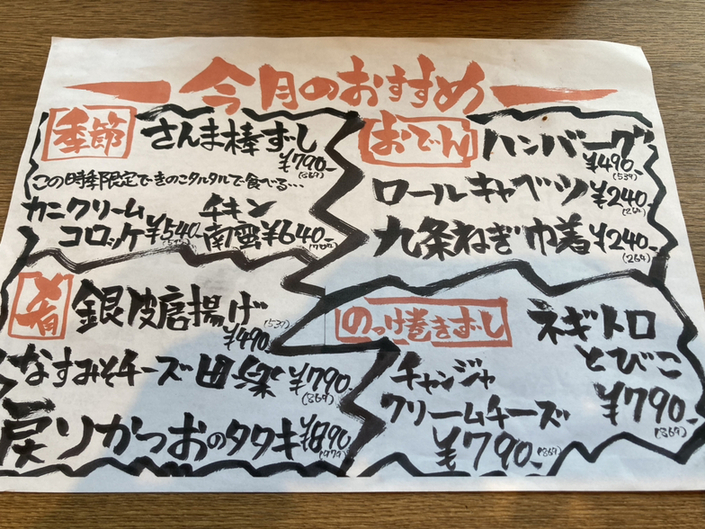 今月のおすすめ
季節 さんま棒ずし
¥790-
(869)
この時季限定できのこタルタルで食べる…
カニクリーム
コロッケ ¥540-
チキン
南蛮 ¥640-
(704)
おでん ハンバーグ
¥490-
(539)
ロールキャベツ ¥240-
(264)
九条ねぎ巾着 ¥240-
(264)
肴 銀皮唐揚げ
(539)
¥490-
なすみそチーズ田楽 ¥790-
(869)
戻りかつおのタタキ ¥890-
(979)
のっけ巻きずし
ネギトロ
とびこ
¥790-
(869)
チャンジャ
クリームチーズ
¥790-
(869)